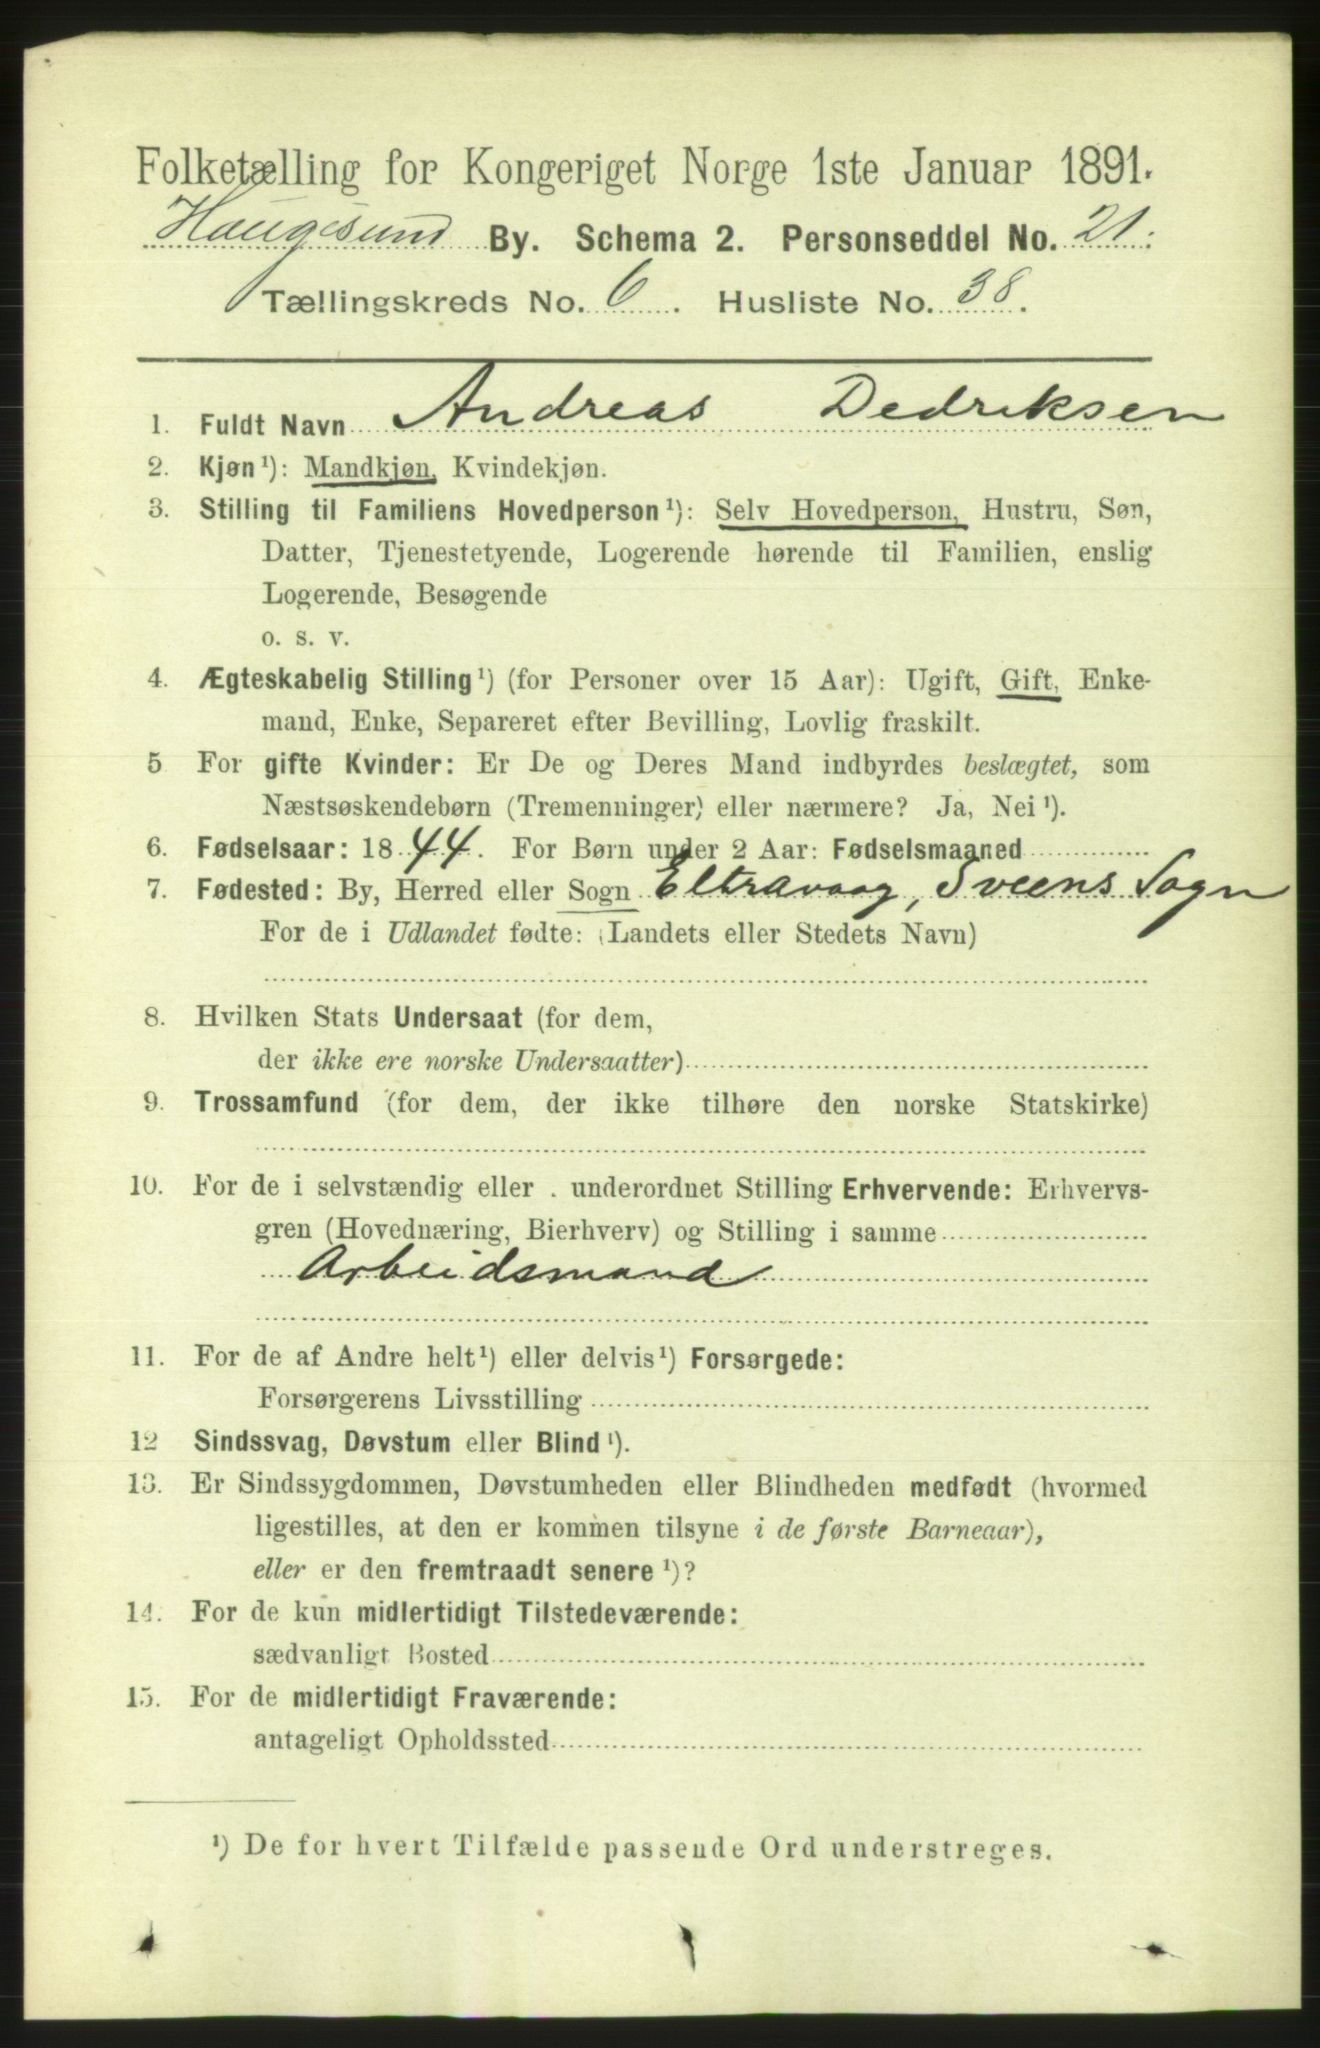 Folketælling for Kongeriget Norge 1ste Januar 1891.
Haugesund By. Schema 2. Personseddel No. 21.
Tællingskreds No. 6. Husliste No. 38.
1. Fuldt Navn Andreas Dedriksen
2. Kjøn¹): Mandkjøn, Kvindekjøn.
3. Stilling til Familiens Hovedperson¹): Selv Hovedperson, Hustru, Søn,
Datter, Tjenestetyende, Logerende hørende til Familien, enslig
Logerende, Besøgende
o. s. v.
4. Ægteskabelig Stilling¹) (for Personer over 15 Aar): Ugift, Gift, Enke-
mand, Enke, Separeret efter Bevilling, Lovlig fraskilt.
5 For gifte Kvinder: Er De og Deres Mand indbyrdes beslægtet, som
Næstsøskendebørn (Tremenninger) eller nærmere? Ja, Nei¹).
6. Fødselsaar: 1844. For Børn under 2 Aar: Fødselsmaaned
7. Fødested: By, Herred eller Sogn Eltravaag, Sveens Sogn
For de i Udlandet fødte: (Landets eller Stedets Navn)
8. Hvilken Stats Undersaat (for dem,
der ikke ere norske Undersaatter)
9. Trossamfund (for dem, der ikke tilhøre den norske Statskirke)
10. For de i selvstændig eller . underordnet Stilling Erhvervende: Erhvervs-
gren (Hovednæring, Bierhverv) og Stilling i samme
Arbeidsmand
11. For de af Andre helt¹) eller delvis¹) Forsørgede:
Forsørgerens Livsstilling
12 Sindssvag, Døvstum eller Blind¹).
13. Er Sindssygdommen, Døvstumheden eller Blindheden medfødt (hvormed
ligestilles, at den er kommen tilsyne i de første Barneaar),
eller er den fremtraadt senere¹)?
14. For de kun midlertidigt Tilstedeværende:
sædvanligt Bosted
15. For de midlertidigt Fraværende:
antageligt Opholdssted
¹) De for hvert Tilfælde passende Ord understreges.